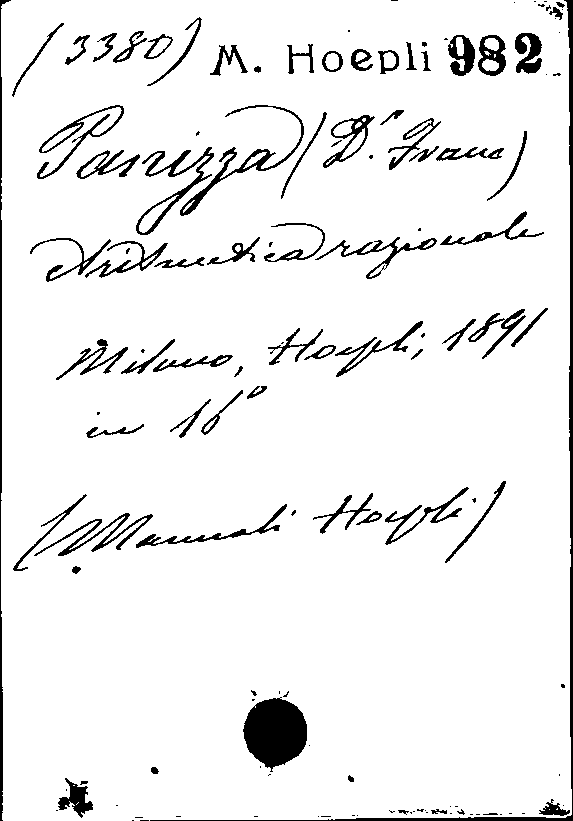 (3380) M. Hoepli 982
Panizza (Dr. Franc)
Aritmetica razionale
Milano, Hoepli, 1891
in 16°
(Manuali Hoepli)